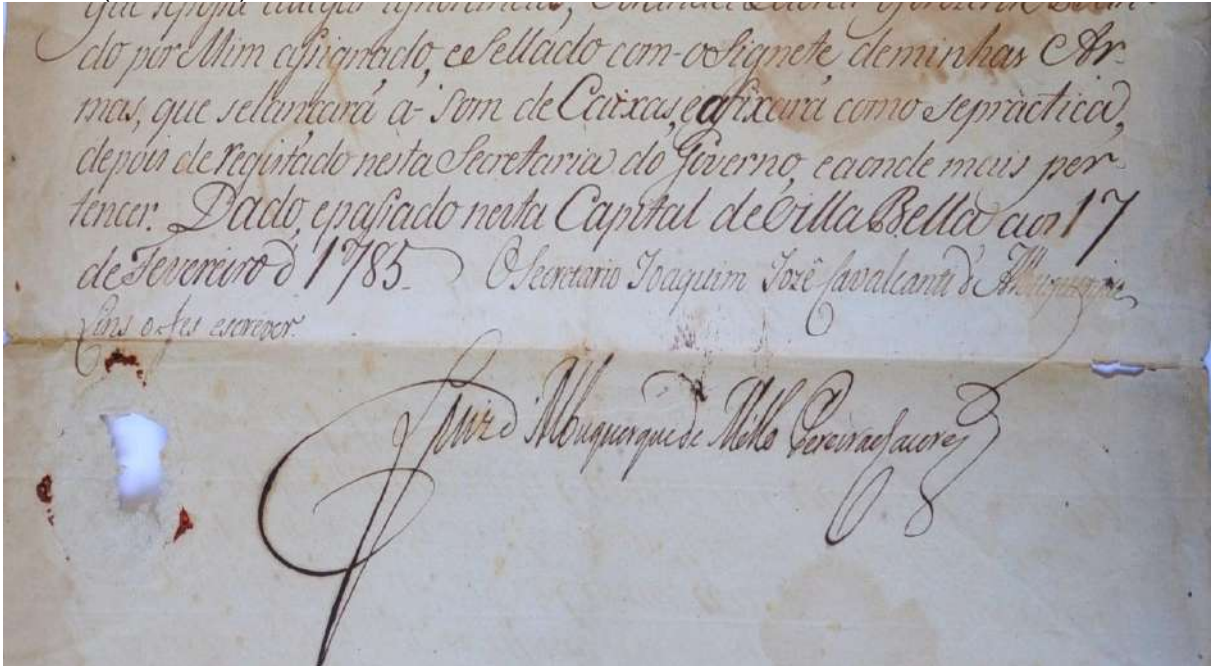 que se possa allegar ignorancia,
do por Mim asignado, e Sellado com-o Signete de minhas Ar-
mas, que se lançará á-som de Caixas, e afixará como se práctica,
depois de registado nesta Secretaria do Governo, e aonde mais per-
tencer. Dado, e passado nesta Capital de Villa Bella aos 17
de Fevereiro d' 1785_ O Secretario Joaquim Jozê Cavalcanti d' Albuquerque
Lins o fes escrever.
Luiz d' Albuquerque de Mello Pereira e Caceres